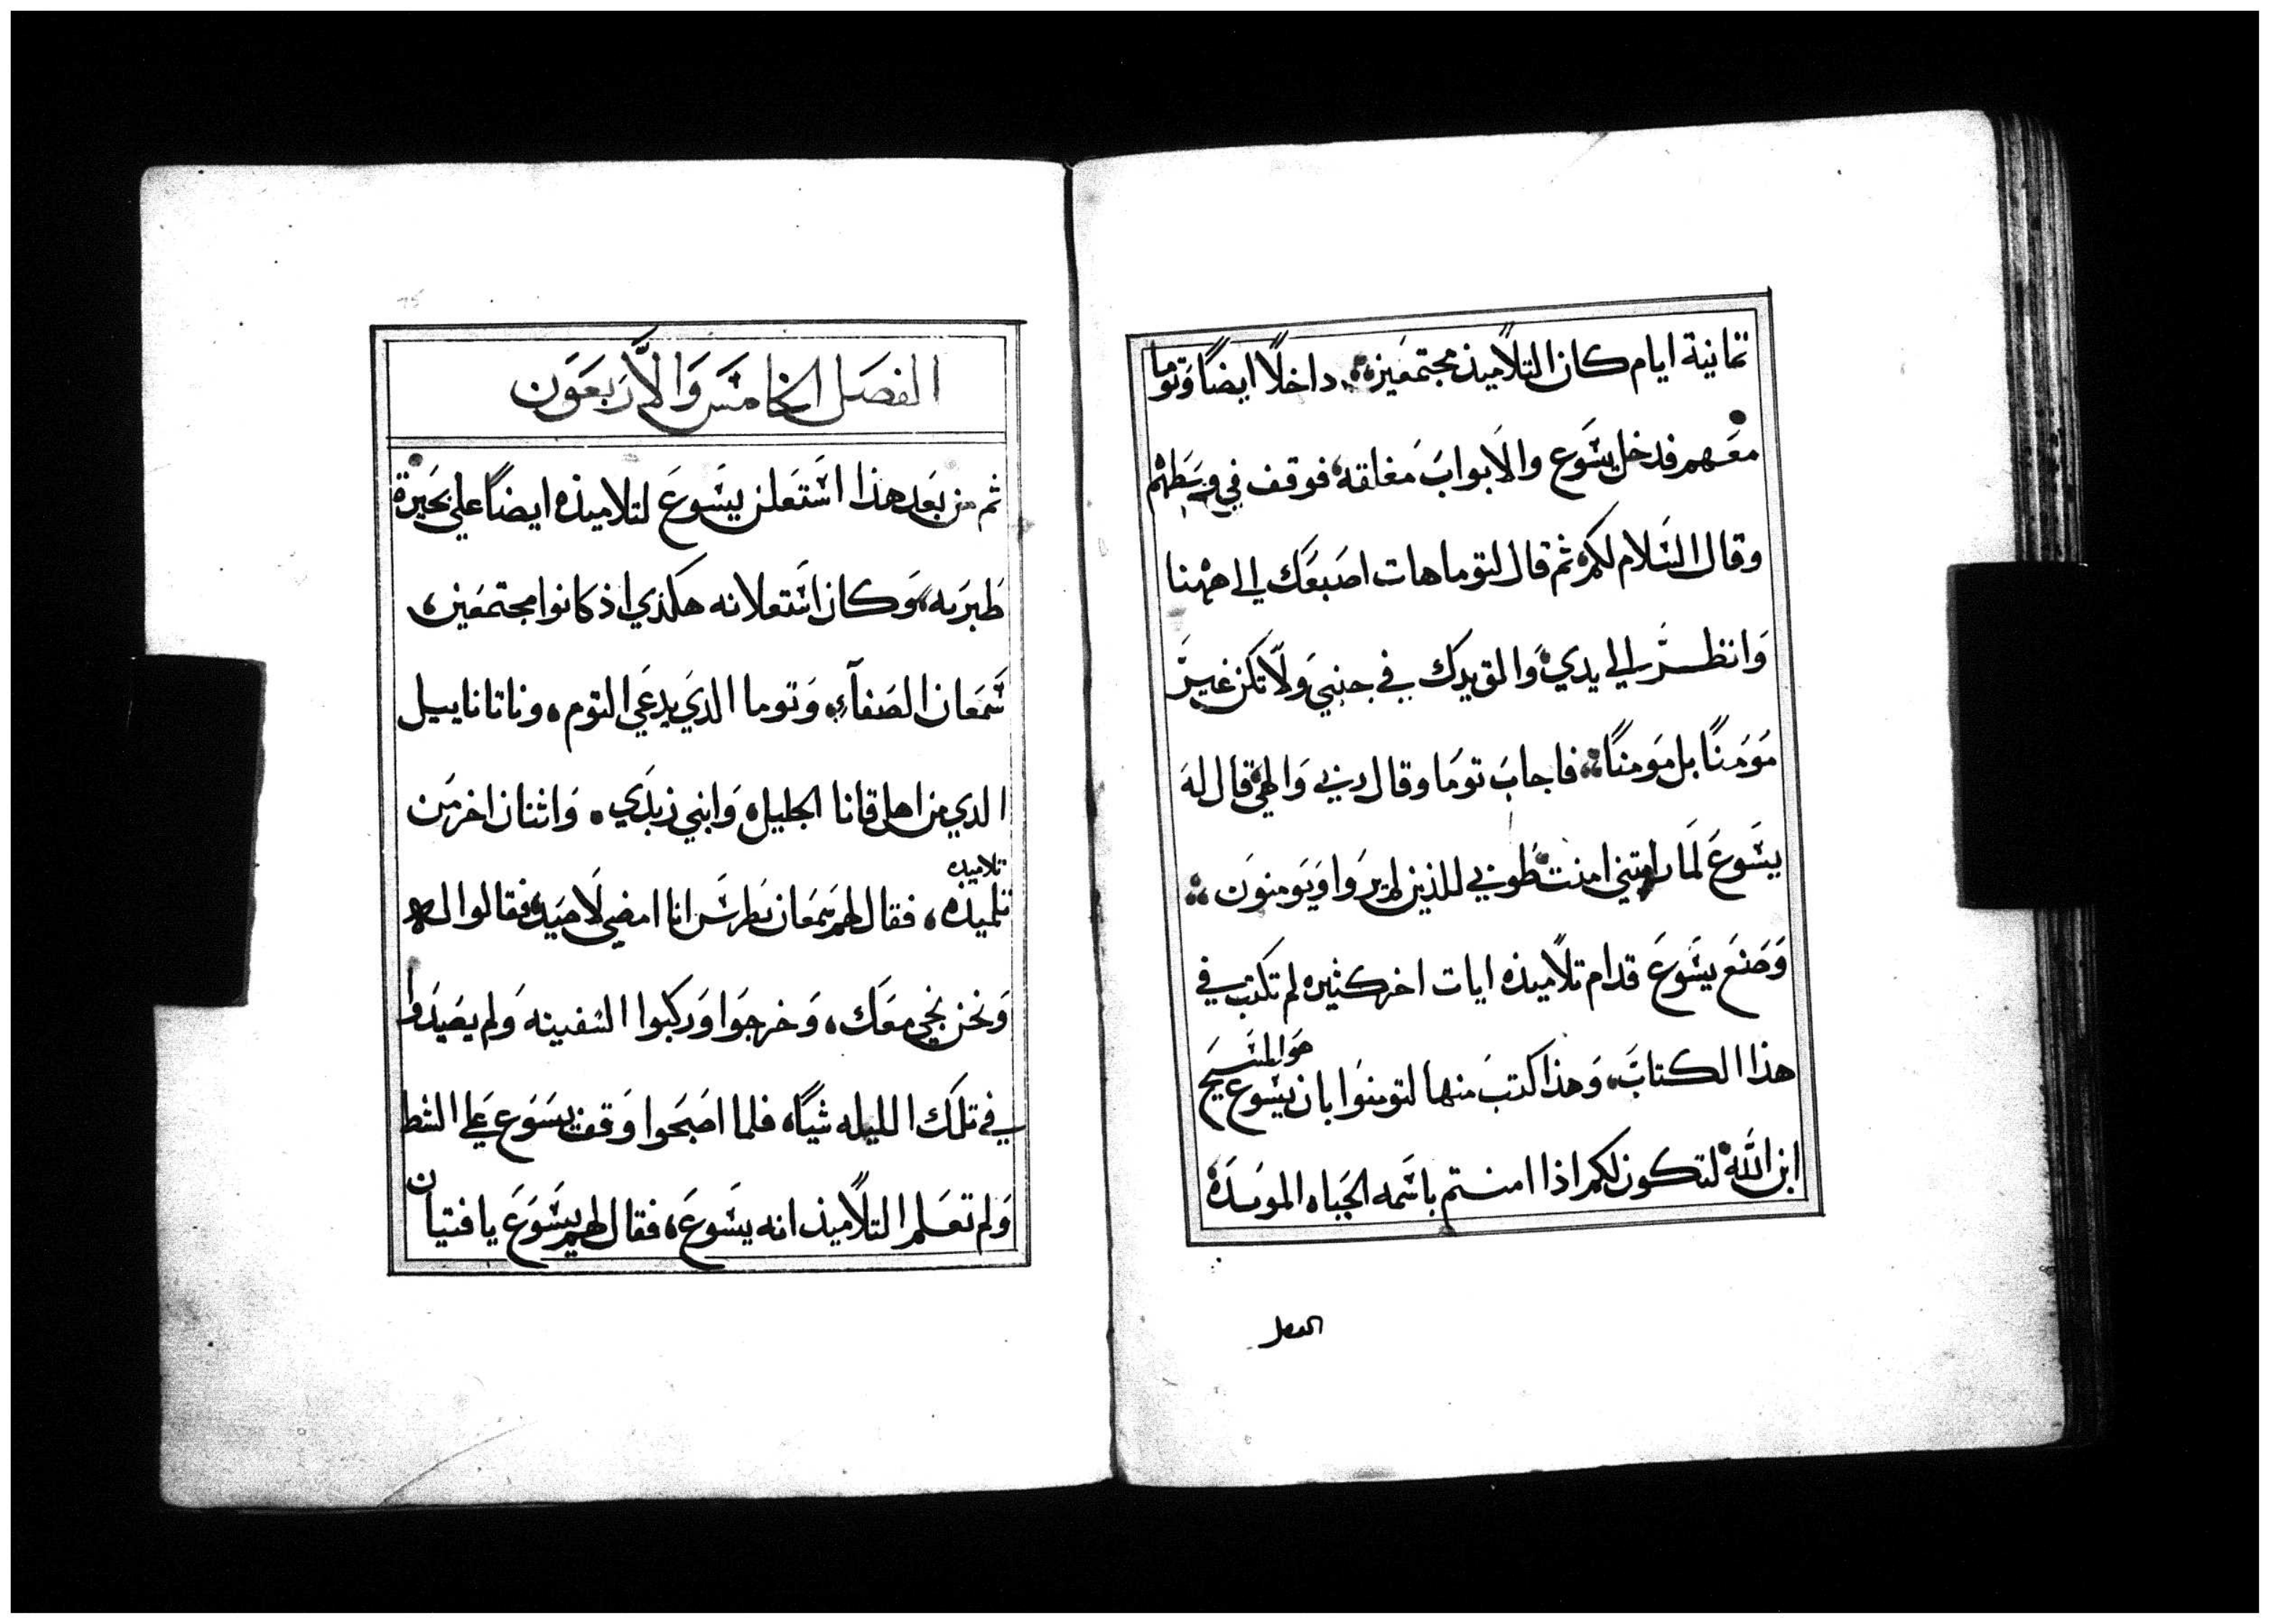 ثمانية ايام كان التلاميذ مجتمعين داخلاً ايضاً وتوما
معهم فدخل يشوع والابواب مغلقه فوقف في وسطهم
وقال السلام لكم ثم قال لتوما هات اصبعك الى ههنا
وانظر الي يدي والق يدك في جنبي ولا تكن غير
مومناً بل مومناً فاجاب توما وقال ربي والهي قال له
يشوع لما رايتني امنت طوبي للذين لم يروا ويومنون
وصنع يشوع قدام تلاميذه ايات اخر كثيره لم تكتب في
هذا الكتاب وهذا كتب منها لتومنوا بان يشوع هو المسيح
ابن الله لتكون لكم اذا امنتم باسمه الحياه الموبده
الفصل
الفصل الخامس والاربعون
ثم من بعد هذا اشتعلن يشوع لتلاميذه ايضاً على بحيرة
طبريه وكان اشتعلانه هكذي اذ كانوا مجتمعين
شمعان الصفآء وتوما الدي يدعي التوم وناتانا ييل
الدي من اهل قانا الجليل وابني زبدي واثنان اخر من
تلاميده
تلميده فقال لهم شمعان بطرس انا امضي لاصيد فقالوا له
ونحن نجي معك وخرجوا وركبوا السفينه ولم يصيدوا
في تلك الليله شيا فلما اصبحوا وقف يسوع علي الشط
ولم تعلم التلاميذ انه يشوع فقال لهم يشوع يا فتيان